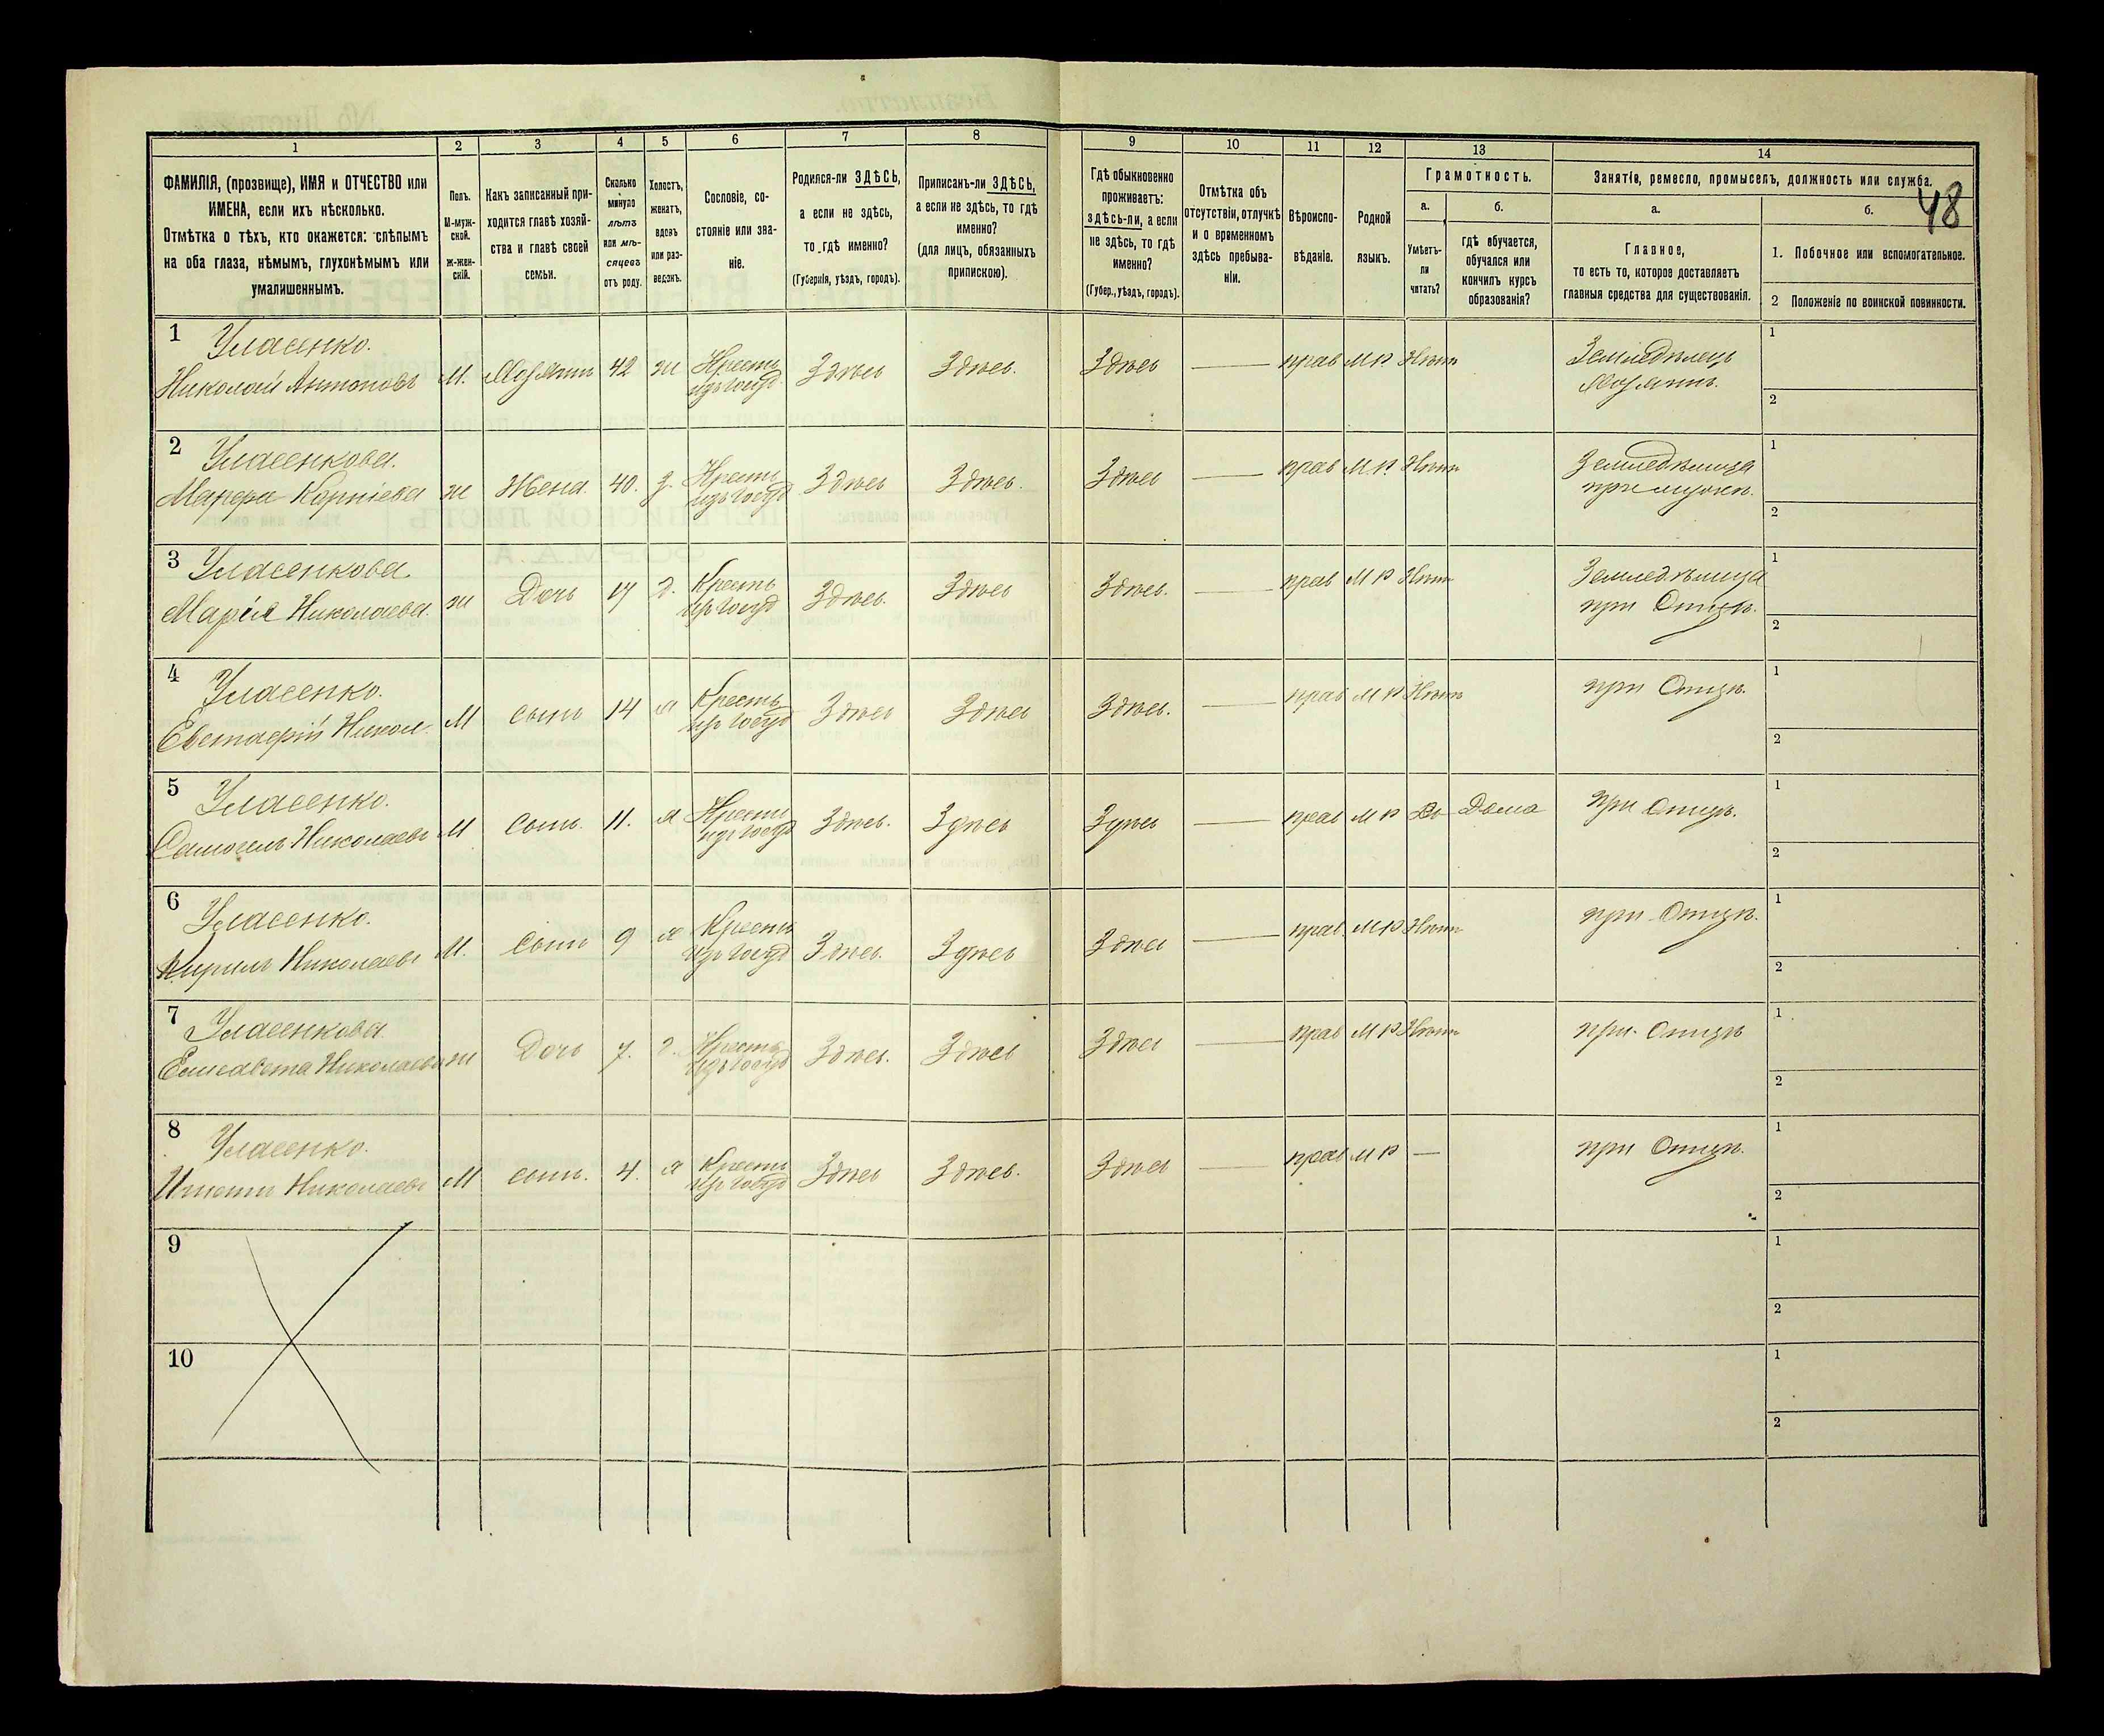 48
1 2 3 4 5 6 7 8 9 10 11 12 13 14
ФАМИЛІЯ, (прозвище), ИМЯ и ОТЧЕСТВО или
ИМЕНА, если ихъ нѣсколько.
Отмѣтка о тѣхъ, кто окажется: слѣпымъ
на оба глаза, нѣмымъ, глухонѣмымъ или
умалишеннымъ.
Полъ.
М-муж-
ской.
Ж-жен-
скій.
Какъ записанный при-
ходится главѣ хозяй-
ства и главѣ своей
семьи.
Сколько
минуло
лѣтъ
или мѣ-
сяцевъ
отъ роду.
Холостъ,
женатъ,
вдовъ
или раз-
веденъ.
Сословіе, со-
стояніе или зва-
ніе.
Родился-ли ЗДѢСЬ,
а если не здѣсь,
то гдѣ именно?
(Губернія, уѣздъ, городъ).
Приписанъ-ли ЗДѢСЬ,
а если не здѣсь, то гдѣ
именно?
(для лицъ, обязанныхъ
припискою).
Гдѣ обыкновенно
проживаетъ:
здѣсь-ли, а если
не здѣсь, то гдѣ
именно?
(Губер., уѣздъ, городъ).
Отмѣтка объ
отсутствіи, отлучкѣ
и о временномъ
здѣсь пребыва-
ніи.
Вѣроиспо-
вѣданіе.
Родной
языкъ.
Грамотность.
а.
Умѣетъ-
ли
читать?
б.
гдѣ обучается,
обучался или
кончилъ курсъ
образованія?
Занятіе, ремесло, промыселъ, должность или служба.
а.
Главное,
то есть то, которое доставляетъ
главныя средства для существованія.
б.
1. Побочное или вспомогательное.
2 Положеніе по воинской повинности.
1 Уласенко.
Николай Антоновъ М. Хозяинъ 42 ж Крестъ
изъ госуд Здѣсь Здѣсь. Здѣсь — прав М.Р. Нѣтъ Земледѣлецъ
Хозяинъ. 1
2
2 Уласенкова.
Корніева ж Жена 40. з. Крестъ
изъ госуд Здѣсь Здѣсь. Здѣсь — прав М.Р. Нѣтъ Земледѣлица
при мужѣ. 1
2
3 Уласенкова
Марія Николаева. ж Дочь 17 д. Крестъ
изъ госуд Здѣсь. Здѣсь Здѣсь. — прав М Р Нѣтъ Земледѣлица
при Отцѣ. 1
2
4 Уласенко.
Евстафій Никол. М сынъ 14 х Крестъ
изъ госуд Здѣсь Здѣсь Здѣсь. — прав М Р Нѣтъ при Отцѣ. 1
2
5 Уласенко.
Самоилъ Николаевъ М Сынъ. 11. х Крестъ
изъ госуд Здѣсь. Здѣсь Здѣсь — прав М Р Да Дома при Отцѣ. 1
2
6 Уласенко.
Кирилъ Николаевъ М. Сынъ 9 х Крестъ
изъ госуд Здѣсь. Здѣсь Здѣсь — прав М Р Нѣтъ при Отцѣ. 1
2
7 Уласенкова
Елисавета Николаева ж Дочь 7. д. Крестъ
изъ госуд Здѣсь. Здѣсь Здѣсь — прав М Р Нѣтъ при Отцѣ 1
2
8 Уласенко.
Николаевъ М сынъ. 4. х Крестъ
изъ госуд Здѣсь Здѣсь. Здѣсь — прав М Р — при Отцѣ. 1
2
9 1
2
10 1
2